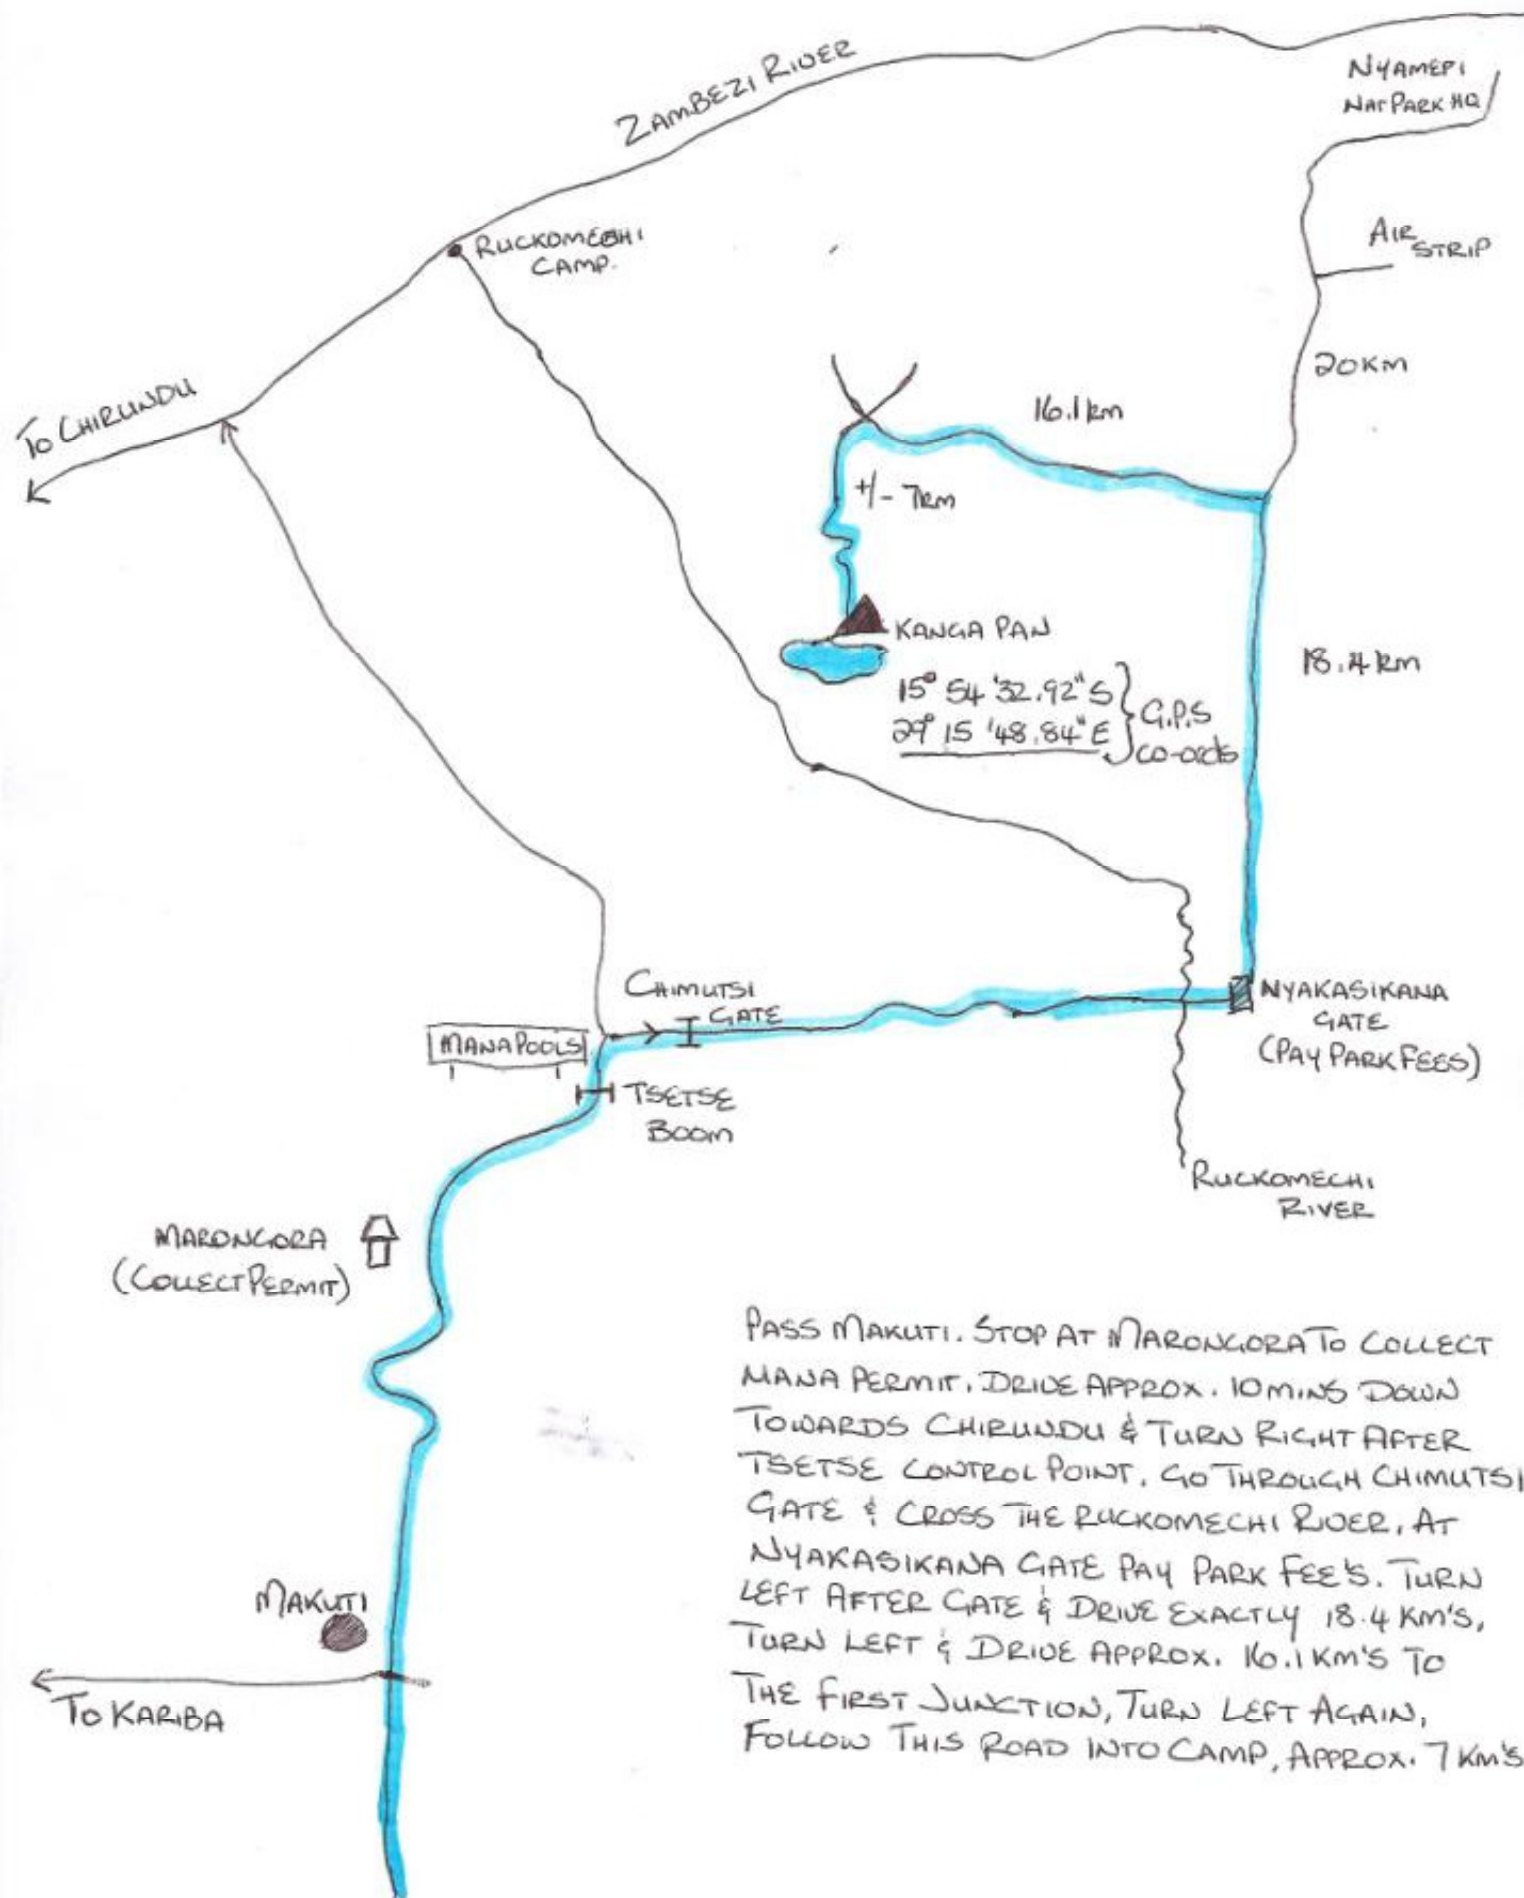 ZAMBEZI RIVER
NYAMEPI
NAT PARK HQ
RUCKOMECHI
CAMP.
AIR
STRIP
20KM
TO CHIRUNDU
16.1km
+/- 7km
KANGA PAN
15° 54 '32.92" S
29° 15 '48.84" E
G.P.S
co-ords
18.4 km
CHIMUTSI
GATE
MANA POOLS
NYAKASIKANA
GATE
(PAY PARK FEES)
TSETSE
BOOM
RUCKOMECHI
RIVER
MARONGORA
(COLLECT PERMIT)
PASS MAKUTI. STOP AT MARONGORA TO COLLECT
MANA PERMIT. DRIVE APPROX. 10 MINS DOWN
TOWARDS CHIRUNDU & TURN RIGHT AFTER
TSETSE CONTROL POINT. GO THROUGH CHIMUTSI
GATE & CROSS THE RUCKOMECHI RIVER, AT
NYAKASIKANA GATE PAY PARK FEE'S. TURN
LEFT AFTER GATE & DRIVE EXACTLY 18.4 KM'S,
TURN LEFT & DRIVE APPROX. 16.1 KM'S TO
THE FIRST JUNCTION, TURN LEFT AGAIN,
FOLLOW THIS ROAD INTO CAMP, APPROX. 7 KM'S
MAKUTI
TO KARIBA